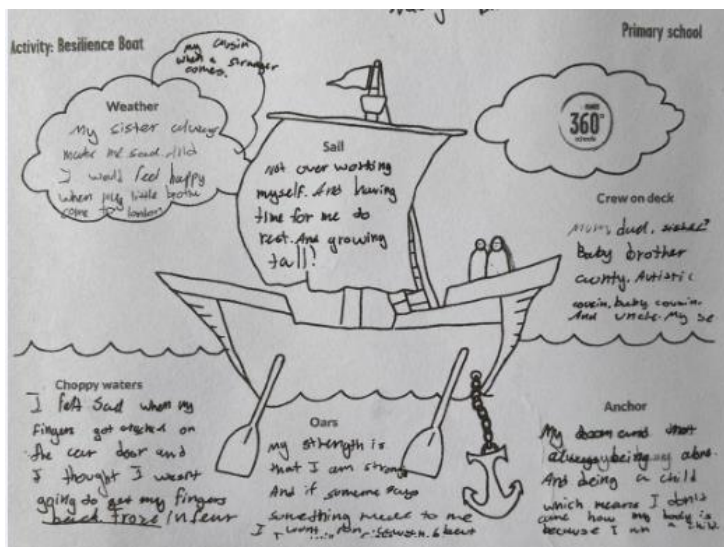 Activity: Resilience Boat
Primary school
my cousin
when a stranger
comes.
Weather
My sister always
make me sad and
I would feel happy
when my little brothe
come to london
Sail
Not over working
myself. And having
time for me do
rest. And growing
tall?
360°
Crew on deck
Mum, dad, sister?
Baby brother
aunty. Autistic
cousin, baby cousin.
And uncle. My se
Choppy waters
I felt sad when my
fingers got on
the car door and
I thought I wasn't
going to get my fingers
back. froze in fear
Oars
my strength is
that I am strong
And if someone says
something to me
I
Anchor
My and not
always being alone.
And being a child
which means I don't
care how my body is
because I am a child